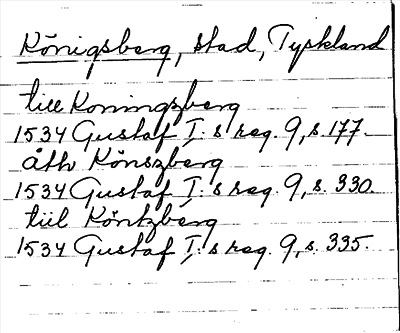 Königsberg, stad, Tyskland
till Koningzberg
1534 Gustaf I:s reg. 9, s. 177.
åth Könszberg
1534 Gustaf I:s reg. 9, s. 330.
till Köntzberg
1534 Gustaf I:s reg. 9, s. 335.